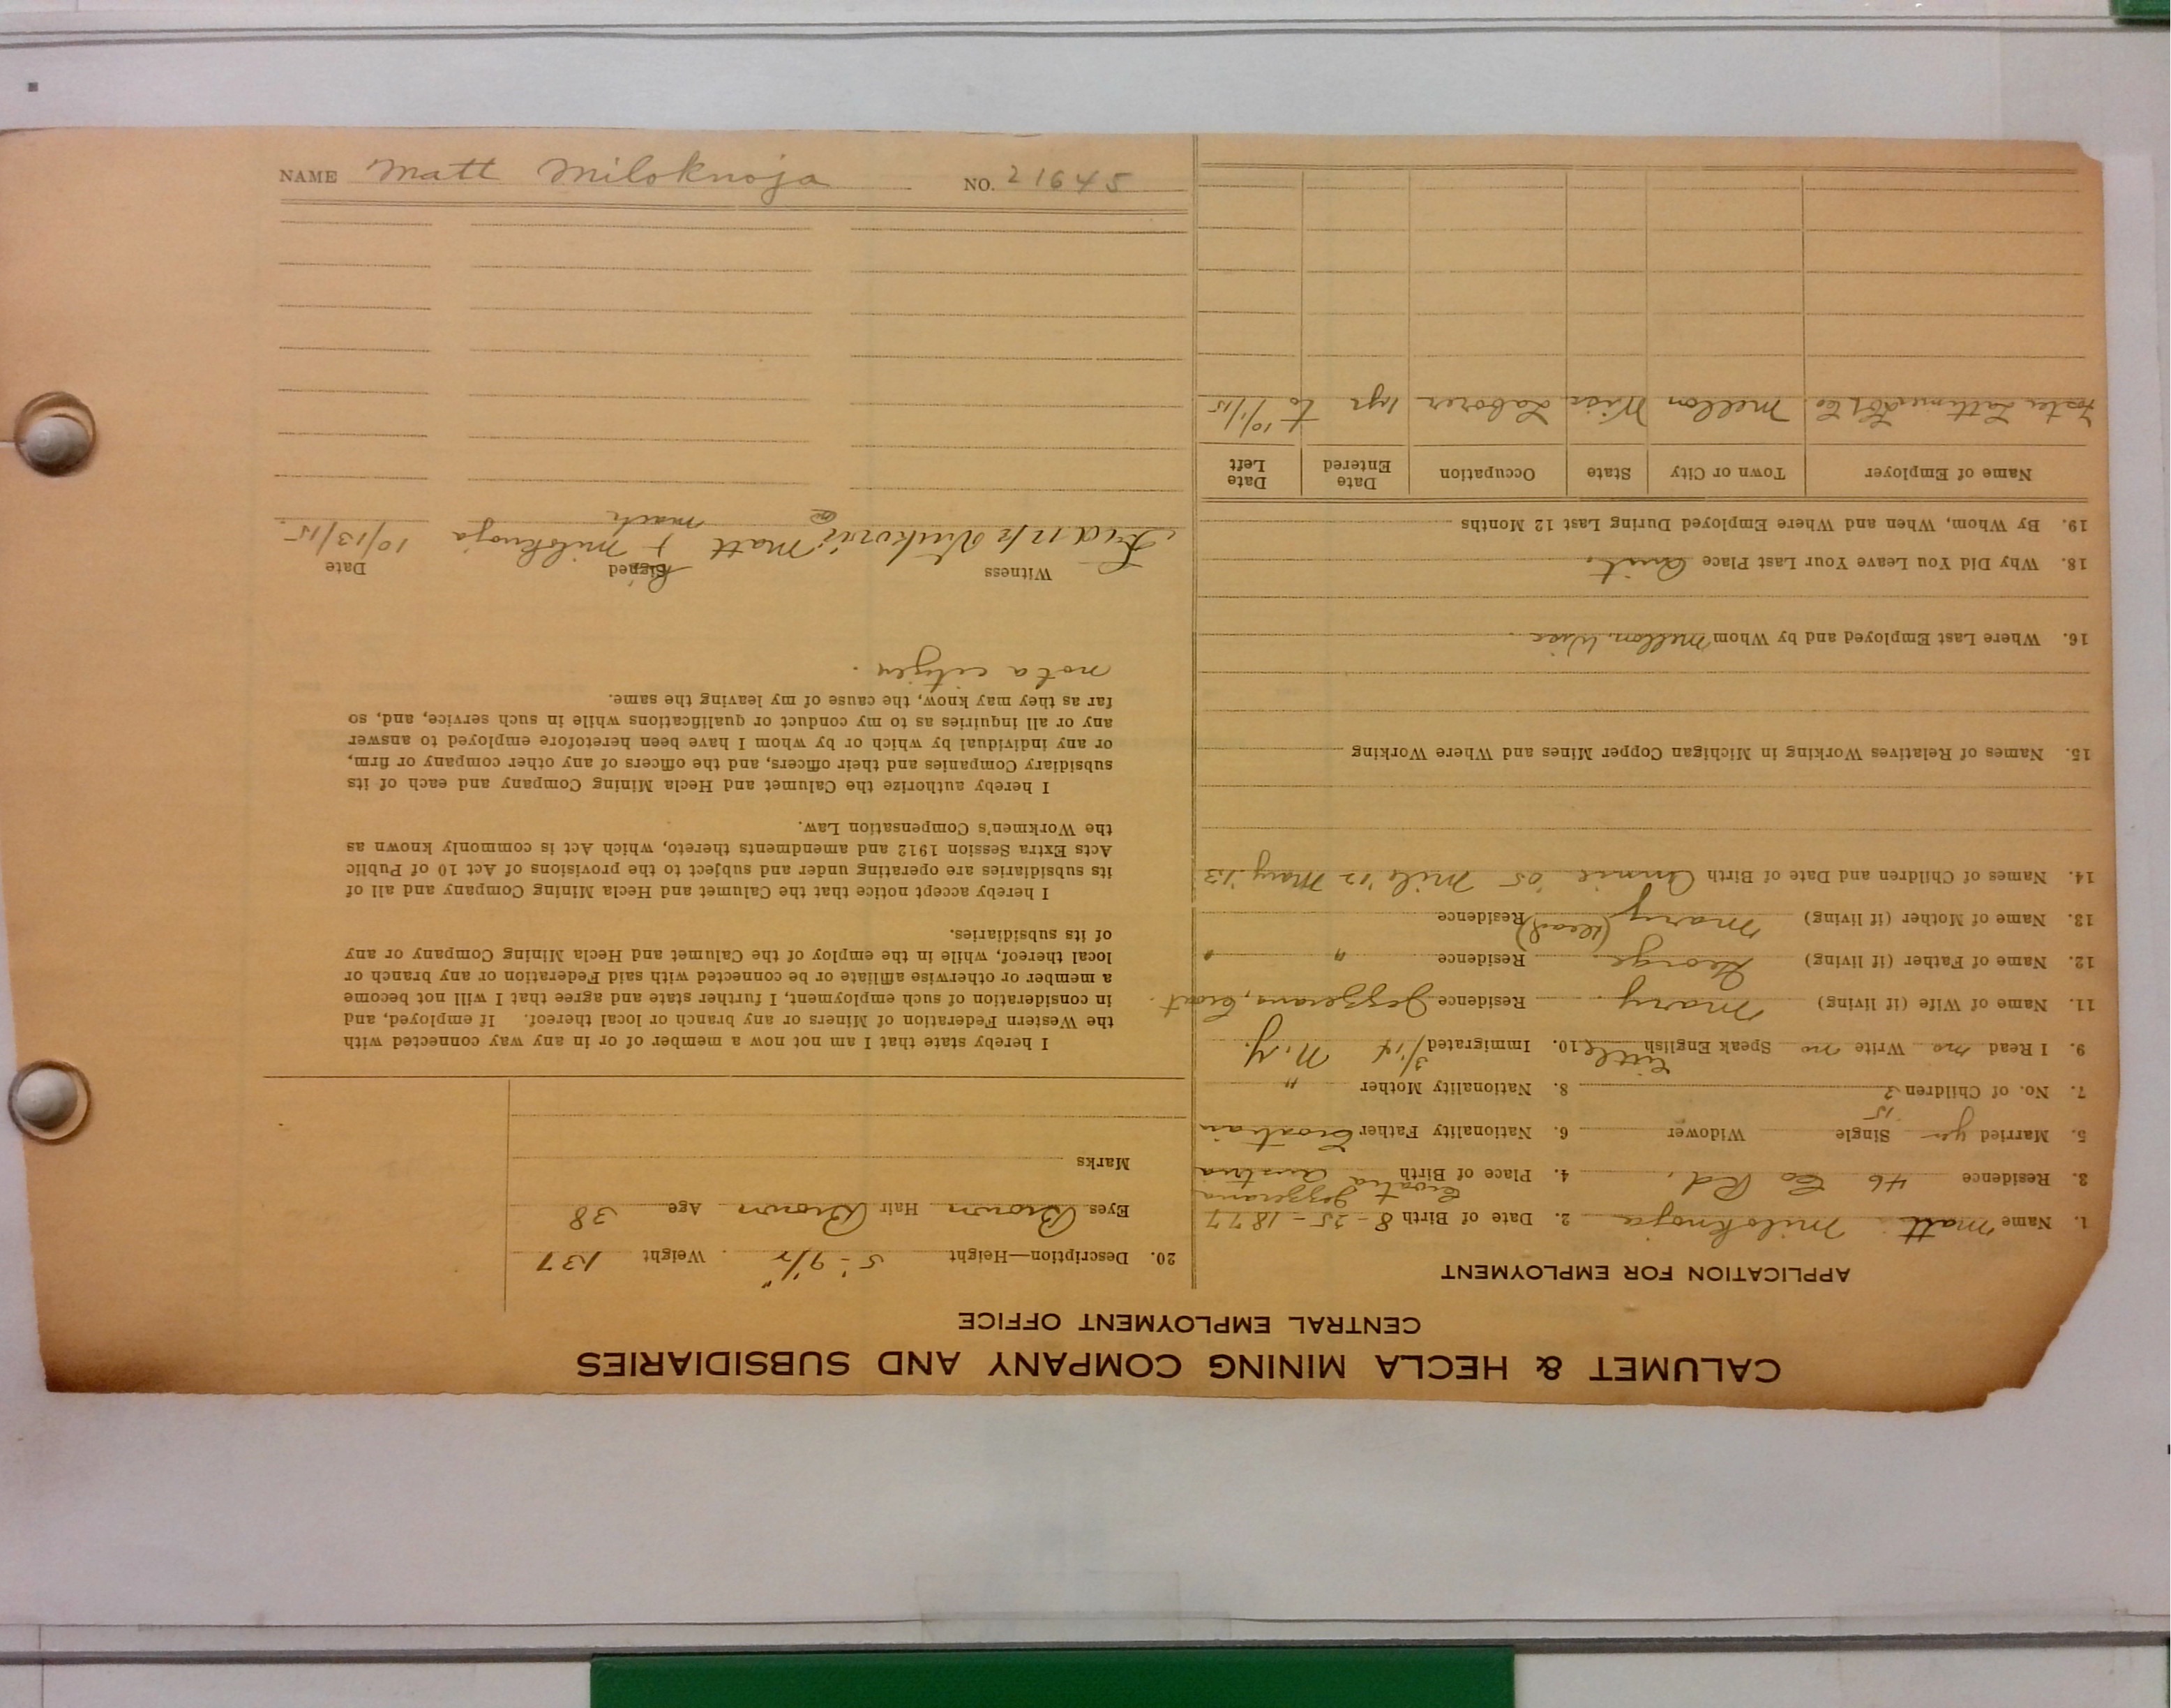 NAME Matt Miloknoja NO. 21645
CALUMET & HECLA MINING COMPANY AND SUBSIDIARIES
CENTRAL EMPLOYMENT OFFICE
APPLICATION FOR EMPLOYMENT
1. Name Matt Miloknoja 2. Date of Birth 8-25-1877
Croatia Jezzerana
3. Residence 46 Co Rd. 4. Place of Birth Austria
5. Married yes Single Widower 6. Nationality Father Croatian
15
7. No. of Children 3 8. Nationality Mother "
9. I Read no Write no Speak English Little 10. Immigrated 3/14 N.Y.
11. Name of Wife (if living) Mary. Residence Jezzerana, Croat.
12. Name of Father (if living) George. Residence " "
13. Name of Mother (if living) Mary (Dead) Residence
14. Names of Children and Date of Birth Annie '05 Mile '12 Mary '13
15. Names of Relatives Working in Michigan Copper Mines and Where Working
16. Where Last Employed and by Whom Mellon, Wisc.
18. Why Did You Leave Your Last Place Quit.
19. By Whom, When and Where Employed During Last 12 Months
Name of Employer Town or City State Occupation Date Entered Date Left
Foster Lattimer Co. Mellon Wisc Laborer 1 yr to 10/1/15
20. Description—Height 5'-9 1/2" Weight 137
Eyes Brown Hair Brown Age 38
Marks
I hereby state that I am not now a member of or in any way connected with
the Western Federation of Miners or any branch or local thereof. If employed, and
in consideration of such employment, I further state and agree that I will not become
a member or otherwise affiliate or be connected with said Federation or any branch or
local thereof, while in the employ of the Calumet and Hecla Mining Company or any
of its subsidiaries.
I hereby accept notice that the Calumet and Hecla Mining Company and all of
its subsidiaries are operating under and subject to the provisions of Act 10 of Public
Acts Extra Session 1912 and amendments thereto, which Act is commonly known as
the Workmen's Compensation Law.
I hereby authorize the Calumet and Hecla Mining Company and each of its
subsidiary Companies and their officers, and the officers of any other company or firm,
or any individual by which or by whom I have been heretofore employed to answer
any or all inquiries as to my conduct or qualifications while in such service, and, so
far as they may know, the cause of my leaving the same.
not a citizen.
Witness Signed Date
Matt + Miloknoja 10/13/15
mark